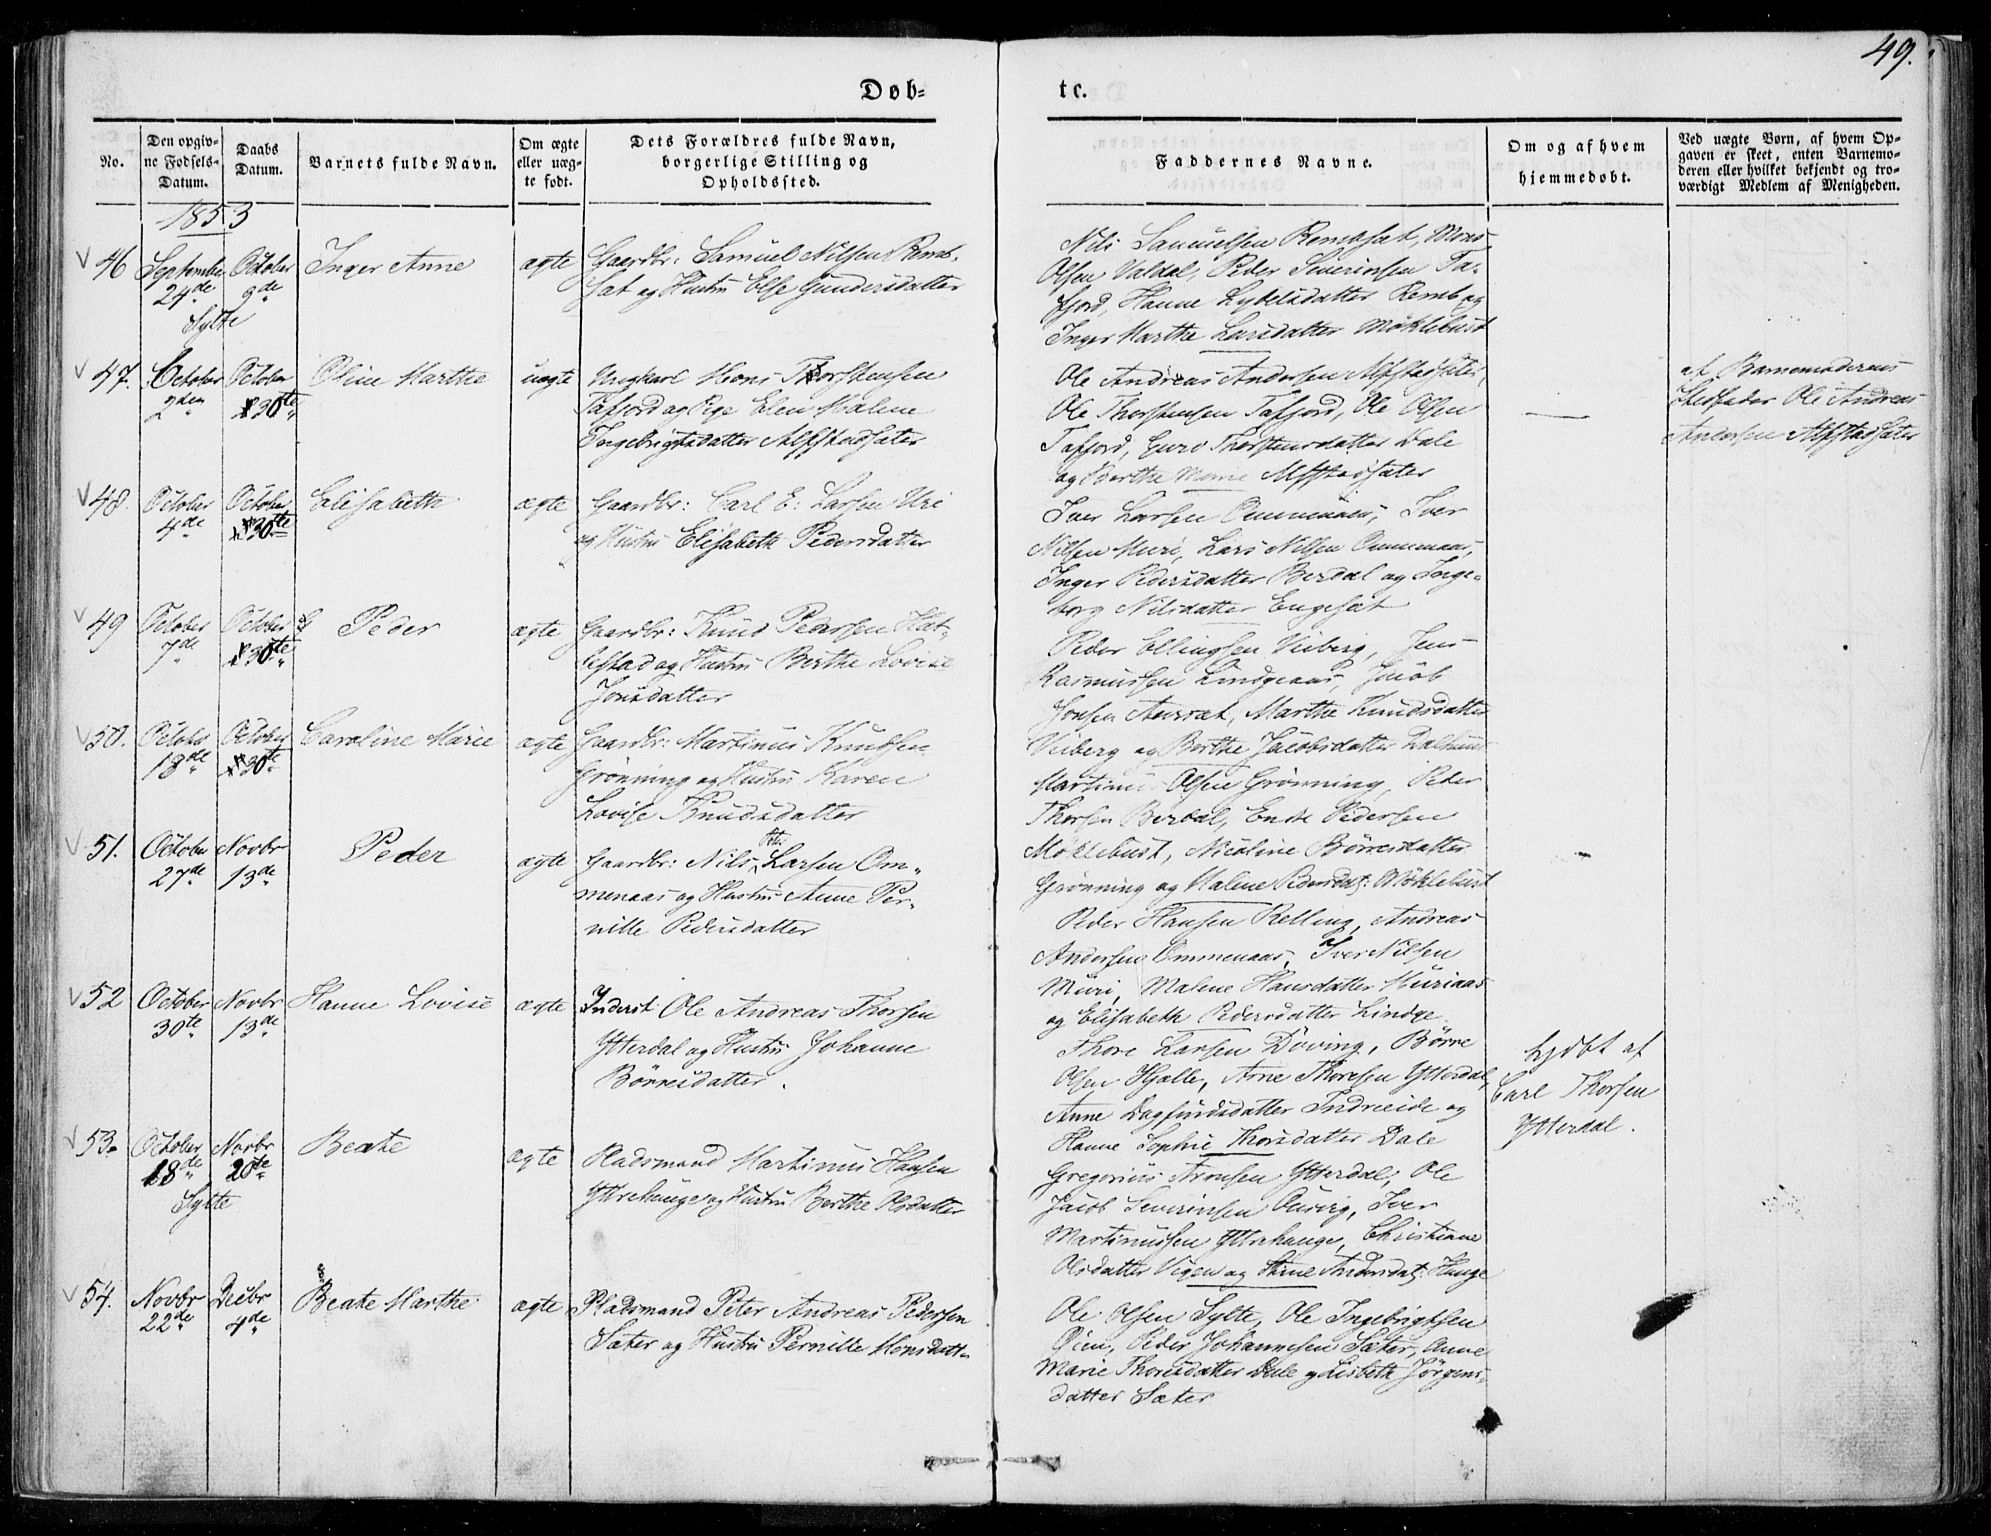 49.
Døb-
te.
No.
Den opgiv-
ne Fødsels-
Datum.
Daabs
Datum.
Barnets fulde Navn.
Om ægte
eller uæg-
te født.
Dets Forældres fulde Navn,
borgerlige Stilling og
Opholdssted.
Faddernes Navne.
Om og af hvem
hjemmedøbt.
Ved uægte Børn, af hvem Op-
gaven er skeet, enten Barnemo-
deren eller hvilket bekjendt og tro-
værdigt Medlem af Menigheden.
1853
46 September 24de October 9de Inger Anne ægte
Sylte
Gaardbr: Samuel Nilsen Remb-
sat og Hustru Else Gundersdatter
Nils Samuelsen Rembsat, Mons
Olsen Valdal, Peder Severinsen Ta-
fjord, Hanne Remb og
Inger Marthe Larsdatter Möklebust
47. October 2den October 30te Oline Marthe uægte
Ungkarl Mons Thorstensen
Tafjord og Pige Elen Malene
Ingebrigtsdatter Alfstadsæter
Ole Andreas Andersen Alfstadsæter,
Ole Thorstensen Tafjord, Ole Olsen
Tafjord, Guro Thorstensdatter Dale
og Berthe Marie Alfstadsæter
af Barnemoderens
Stedfader Ole Andreas
Andersen Alfstadsæter
48. October 4de October 30te Elisabeth ægte
Gaardbr: Carl E. Larsen Uri
og Hustru Elisabeth Pedersdatter
Iver Larsen Ommenaas, Iver
Nilsen Muri, Lars Nilsen Ommenaas,
Inger Pedersdatter Berdal og Inge-
borg Nilsdatter Engeset
49 October 7de October 30te Peder ægte
Gaardbr: Knud Pedersen Hat-
lestad og Hustru Berthe Lovise
Jonsdatter
Peder Ellingsen Viiberg, Jens
Rasmussen Lindgeaas, Jacob
Jonsen, Marthe Knudsdatter
Viiberg og Berthe Jacobsdatter
50. October 18de October 30te Caroline Marie ægte
Gaardbr: Martinus Knudsen
Grönning og Hustru Karen
Lovise Knudsdatter
Martinus Olsen Grönning, Peder
Thorsen Berdal, Endre Pedersen
Möklebust, Nicoline Börresdatter
Grönning og Malene Pedersdat: Möklebust
51. October 27de Novbr 13de Peder ægte
Gaardbr: Nils Larsen Om-
menaas og Hustru Anne Per-
nille Pedersdatter
Peder Hansen Relling, Andreas
Andersen Ommenaas, Iver Nilsen
Muri, Malene Hansdatter Muriaas
og Elisabeth Pedersdatter Lindge.
52 October 30te Novbr 13de Hanne Lovise ægte
Inderst Ole Andreas Thorsen
Ytterdal og Hustru Johanne
Börresdatter.
Thore Larsen Döving, Börre
Olsen Hjelle, Arne Thoresen Ytterdal,
Anne Dagfindsdatter Indreeide og
Hanne Sophie Thorsdatter Dale
hjdbt af
Carl Thorsen
Ytterdal.
53. October 18de Novbr 20de Beate ægte
Sylte
Pladsmand Martinus Hansen
Yttrehauge og Hustru Berthe Olsdatter
Gregorius Aronsen Ytterdal, Ole
Jacob Severinsen, Iver
Martinussen Yttrehauge, Christiane
Olsdatter Vigen og Stine Andersdat: Hauge
54. Novbr 22de Decbr 4de Beate Marthe ægte
Pladsmand Peter Andreas Pedersen
Sæter og Hustru Pernille Monsdatt-
Ole Olsen Sylte, Ole Ingebrigtsen
Öien, Peder Johannesen Sæter, Anne
Marie Thorsdatter Dale og Lisbeth Jörgens-
datter Sæter